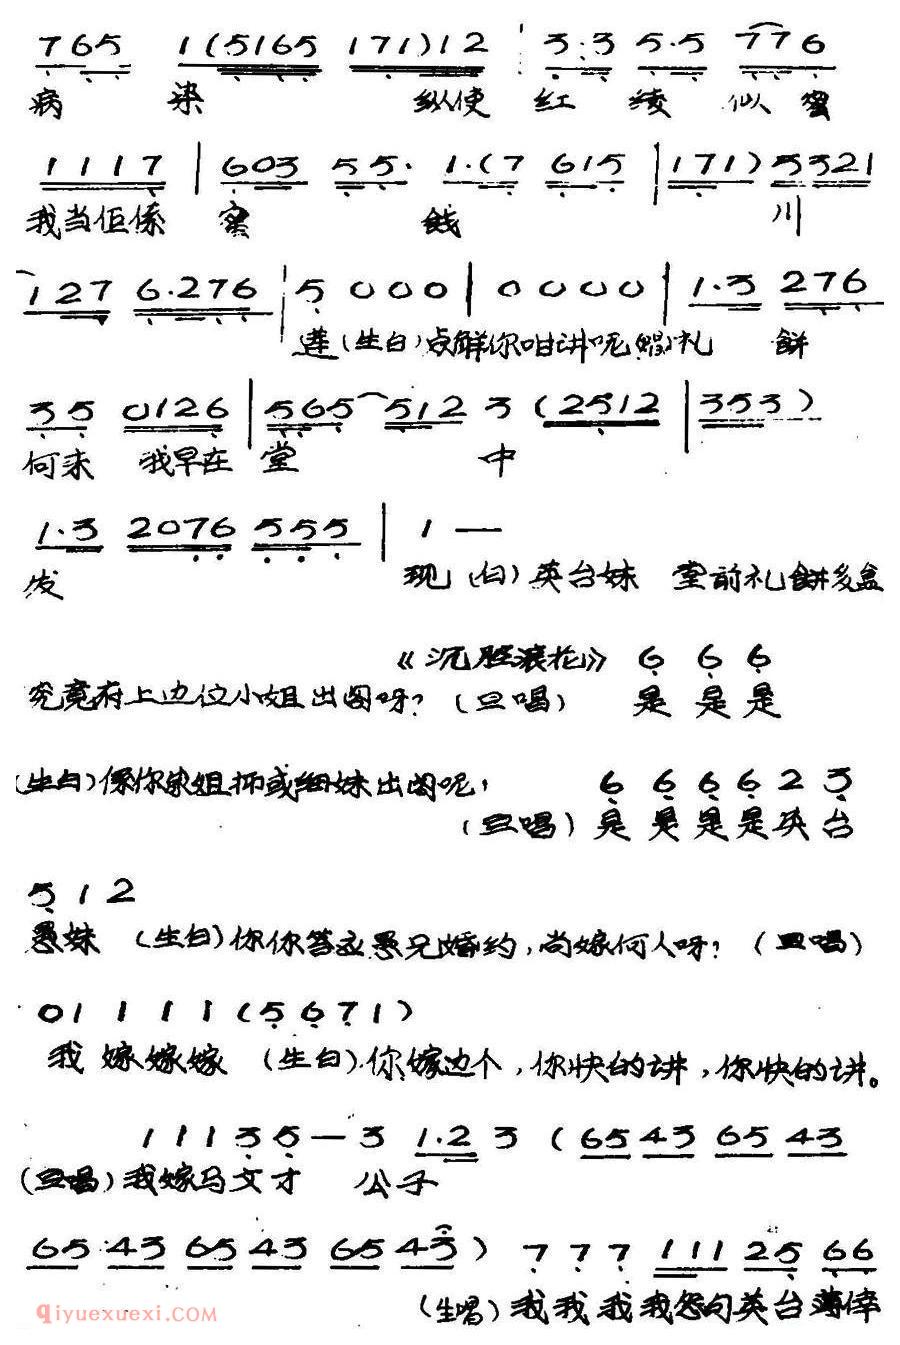 7 6 5 1 ( 5 1 6 5 1 7 1 ) 1 2 3 · 3 5 · 5 7 7 6
病 染 纵使 红 绫 似 蜜
1 1 1 7 | 6 0 3 5 5 · 1 · ( 7 6 1 5 | 1 7 1 ) 5 3 3 2 1
我当佢係 蜜 饯 川
1 2 7 6 · 2 7 6 | 5 0 0 0 | 0 0 0 0 | 1 · 3 2 7 6
莲 (生白) 点解你咁讲呢 (唱) 礼 餅
3 5 0 1 2 6 | 5 6 5 5 1 2 3 ( 2 5 1 2 | 3 5 3 )
何来 我早在 堂 中
1 · 3 2 0 7 6 5 5 5 | 1 —
发 现 (白) 英台妹 堂前礼餅多盒
《沉腔滚花》 6 6 6
究竟府上边位小姐出阁呀? (旦唱) 是 是 是
6 6 6 6 2 3
(生白) 係你家姐抑或细妹出阁呢,
(旦唱) 是 是 是 是 英 台
5 1 2
愚妹 (生白) 你你答应愚兄婚约, 尚嫁何人呀? (旦唱)
0 1 1 1 1 ( 5 6 7 1 )
我 嫁 嫁 嫁 (生白) 你嫁边个, 你快的讲, 你快的讲。
1 1 1 3 5 — 3 1 · 2 3 ( 6 5 4 3 6 5 4 3
(旦唱) 我嫁马文才 公子
6 5 4 3 6 5 4 3 6 5 4 3 ) 7 7 7 1 1 1 2 5 6 6
(生唱) 我 我 我 我怨句英台薄倖
qiyuexuexi.COM